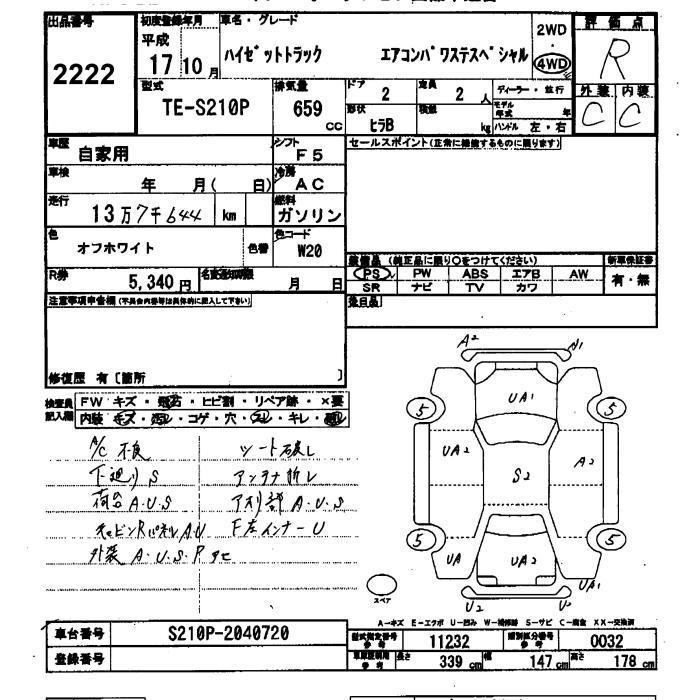 出品番号 初度登録年月 車名・グレード 2WD 評価点
平成 4WD R
2222 17 10月 ハイゼットトラック エアコンパワステスペシャル
型式 排気量 ドア 2 定員 2 人 ディーラー・並行 外装 内装
TE-S210P 659 cc 形状 ヒラB 積載 kg モデル年式 年 C C
ハンドル 左・右
車歴 自家用 シフト F5 セールスポイント(正常に機能するものに限ります)
車検 年 月( 日) 冷房 AC
走行 13万7千644 km 燃料 ガソリン
色 オフホワイト 色替 色コード W20
装備品 (純正品に限り○をつけてください) 新車保証書
R券 5,340円 名変通知期限 月 日 PS PW ABS エアB AW 有・無
SR ナビ TV カワ
注意事項申告欄(不具合内容等は具体的に記入して下さい) 後日品
修復歴 有〔箇所 〕
検査員記入欄 FW キズ・飛石・ヒビ割・リペア跡・×要
内装 キズ・汚レ・コゲ・穴・スレ・キレ・
A/C 不良 シート破レ
下廻り S アンテナ折レ
荷台 A.U.S アオリ部 A.U.S
キャビンRパネル A.U F左インナーU
外装 A.U.S.P タ
A2 A1
UA1
5 5
UA2 S2 A2
5 5
UA UA2 UA1
U2 U2
スペア
A-キズ E-エクボ U-凹み W-補修跡 S-サビ C-腐食 XX-交換済
車台番号 S210P-2040720 型式指定番号 参考 11232 類別区分番号 参考 0032
登録番号 車庫証明用 参考 長さ 339 cm 幅 147 cm 高さ 178 cm